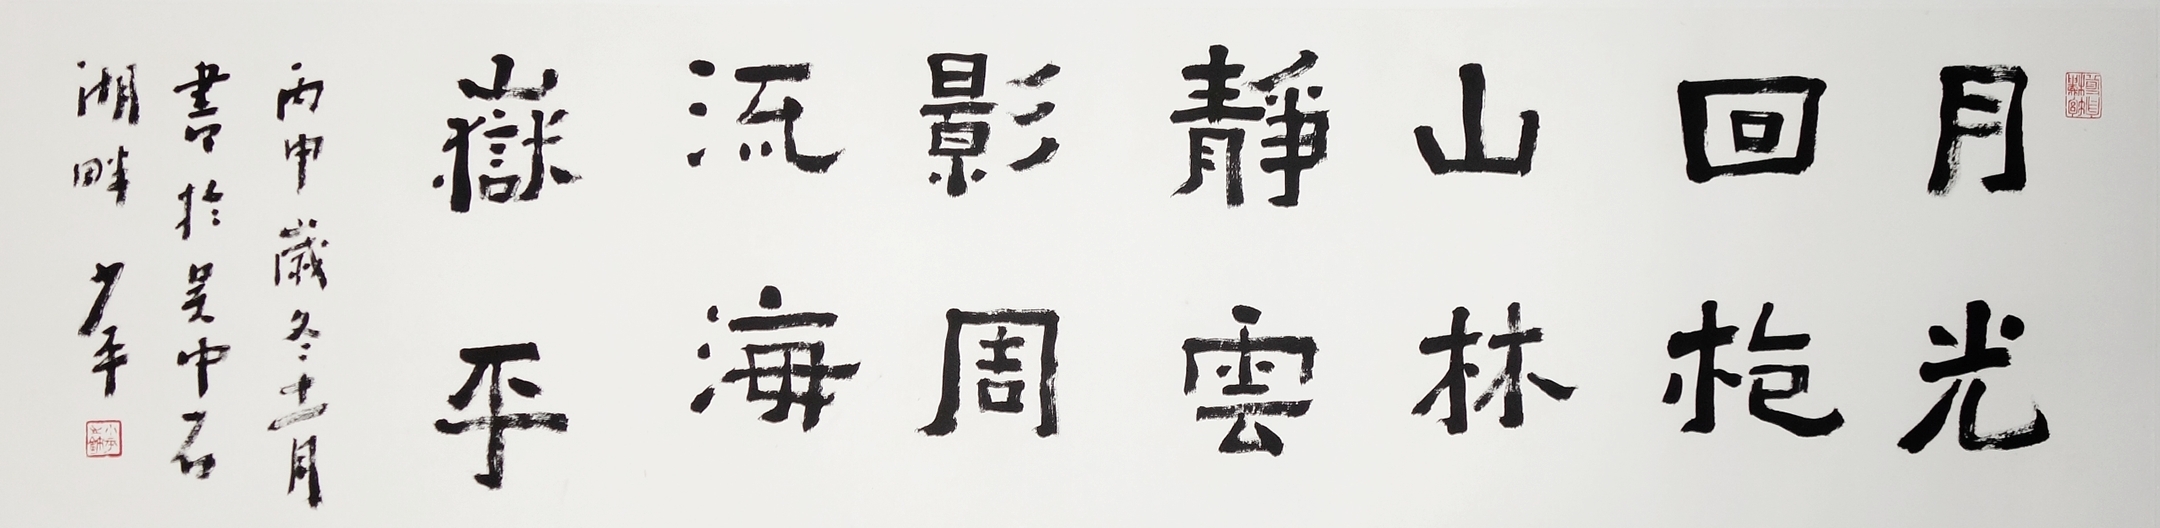 月光
回抱
山林
靜雲
影周
流海
嶽平
丙申歲冬十一月
書於吳中石
湖畔 少平